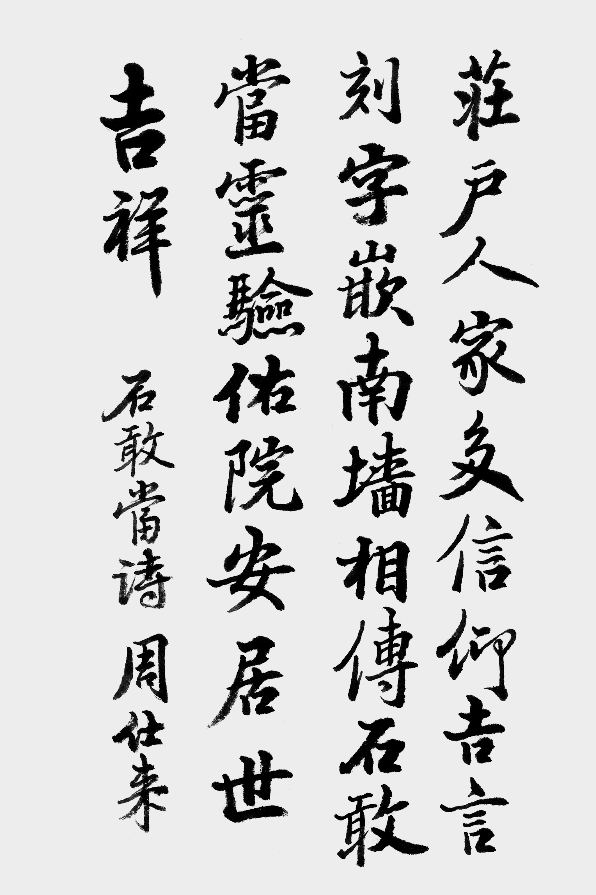 莊戶人家多信仰吉言
刻字嵌南墙相傳石敢
當靈驗佑院安居世
吉祥
石敢當诗 周仕来